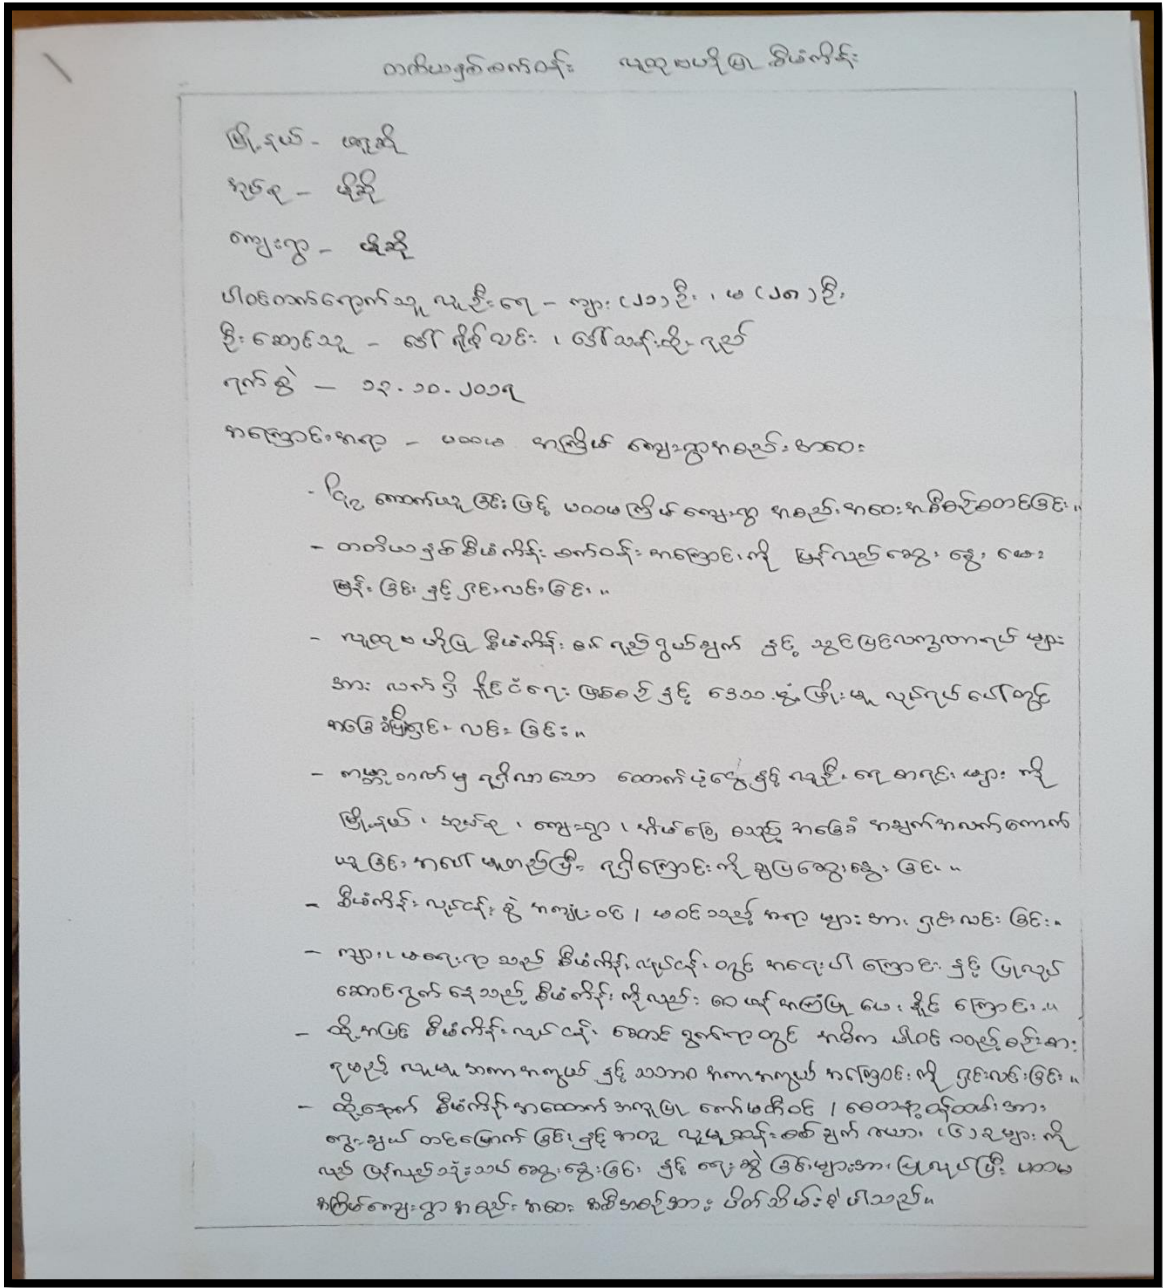 တတိယနှစ်စက်ဝန်း လူထုဗဟိုပြု စီမံကိန်း
မြို့နယ် - ဖရူဆို
အုပ်စု - ဟိုဆို
ကျေးရွာ - ဟိုဆို
ပါဝင်တက်ရောက်သူ လူဦးရေ - ကျား (၂၁) ဦး ၊ မ (၂၈) ဦး
ဦးဆောင်သူ - ဒေါ် လင်း ၊ ဒေါ်သန်းထိုက်
ရက်စွဲ - ၁၃.၁၀.၂၀၁၇
အကြောင်းအရာ - ပထမ အကြိမ် ကျေးရွာအစည်းအဝေး
- ငြိမ် ဆောက်ယူခြင်းဖြင့် ပထမကြိမ်ကျေးရွာ အစည်းအဝေးအစီစဉ်စတင်ခြင်း။
- တတိယနှစ် စီမံကိန်း စက်ဝန်း အကြောင်းကို ပြန်လည်ဆွေးနွေး မေး
မြန်းခြင်း နှင့် ရှင်းလင်းခြင်း။
- လူထုဗဟိုပြု စီမံကိန်း၏ ရည်ရွယ်ချက် နှင့် သွင်ပြင်လက္ခဏာရပ် များ
အား လက်ရှိ နိုင်ငံရေး ဖြစ်စဉ် နှင့် ဒေသဖွံ့ဖြိုးမှု လုပ်ရပ်ပေါ်တွင်
အခြေခံပြီးရှင်းလင်းခြင်း။
- ကမ္ဘာ့ဘဏ်မှ ရရှိလာသော ထောက်ပံ့ငွေနှင့် လူဦးရေ စာရင်းများ ကို
မြို့နယ် ၊ အုပ်စု ၊ ကျေးရွာ ၊ အိမ်ခြေ စသည့် အခြေခံ အချက်အလက်ကောက်
ယူခြင်း အပေါ် မူတည်ပြီး ရရှိကြောင်းကို ချပြဆွေးနွေးခြင်း။
- စီမံကိန်းလုပ်ငန်းစွဲ အကျုံးဝင် ၊ မဝင်သည့် အရာများအား ရှင်းလင်းခြင်း။
- ကျား၊ မရေးရာ သည် စီမံကိန်းလုပ်ငန်းတွင် အရေးပါကြောင်း နှင့် ပြုလုပ်
ဆောင်ရွက်နေသည့် စီမံကိန်းကိုလည်း ဝေဖန်အကြံပြု ပေးနိုင်ကြောင်း။
- ထို့အပြင် စီမံကိန်းလုပ်ငန်း ဆောင်ရွက်ရာတွင် အဓိက ပါဝင် စဉ်းစား
ရမည့် လူမှုအကာအကွယ် နှင့် သဘာဝ အကာအကွယ် အကြောင်းကို ရှင်းလင်းခြင်း။
- ထို့နောက် စီမံကိန်းအထောက်အကူပြု ကော်မတီဝင် ၊ စေတနာ့ဝန်ထမ်းအား
ရွေးချယ် တင်မြှောက်ခြင်းနှင့်အတူ လူမှုဆန်းစစ်ချက် ဇယား (၆) ခုများ ကို
လည်း ပြန်လည်သုံးသပ် ဆွေးနွေးခြင်း နှင့် ရေးဆွဲခြင်းများအား ပြုလုပ်ပြီး ပထမ
အကြိမ်ကျေးရွာ အစည်းအဝေး အစီအစဉ်အား ပိတ်သိမ်းခဲ့ပါသည်။